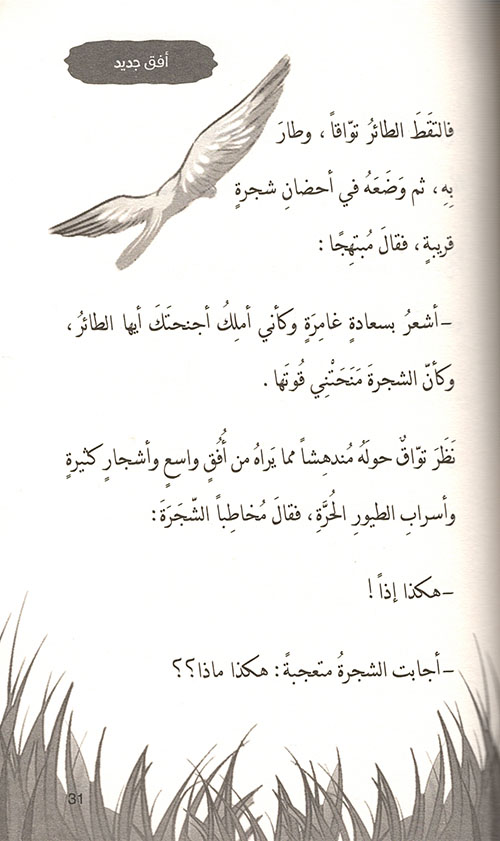 أفق جديد
فالتقَطَ الطائرُ توّاقاً ، وطارَ
بِهِ، ثم وَضَعَهُ في أحضانِ شجرةٍ
قريبةٍ ، فقالَ مُبتهِجًا :
-أشعرُ بسعادةٍ غامِرَةٍ وكأني أملِكُ أجنحتَكَ أيها الطائرُ ،
وكأنّ الشجرةَ مَنَحَتْنِي قُوتَها .
نَظَرَ توّاقٌ حولَهُ مُندهِشاً مما يَراهُ من أُفُقٍ واسعٍ وأشجارٍ كثيرةٍ
وأسرابِ الطيورِ الحُرَّةِ ، فقالَ مُخاطِباً الشّجَرَةَ :
-هكذا إذاً !
-أجابت الشجرةُ متعجبةً : هكذا ماذا؟؟
31